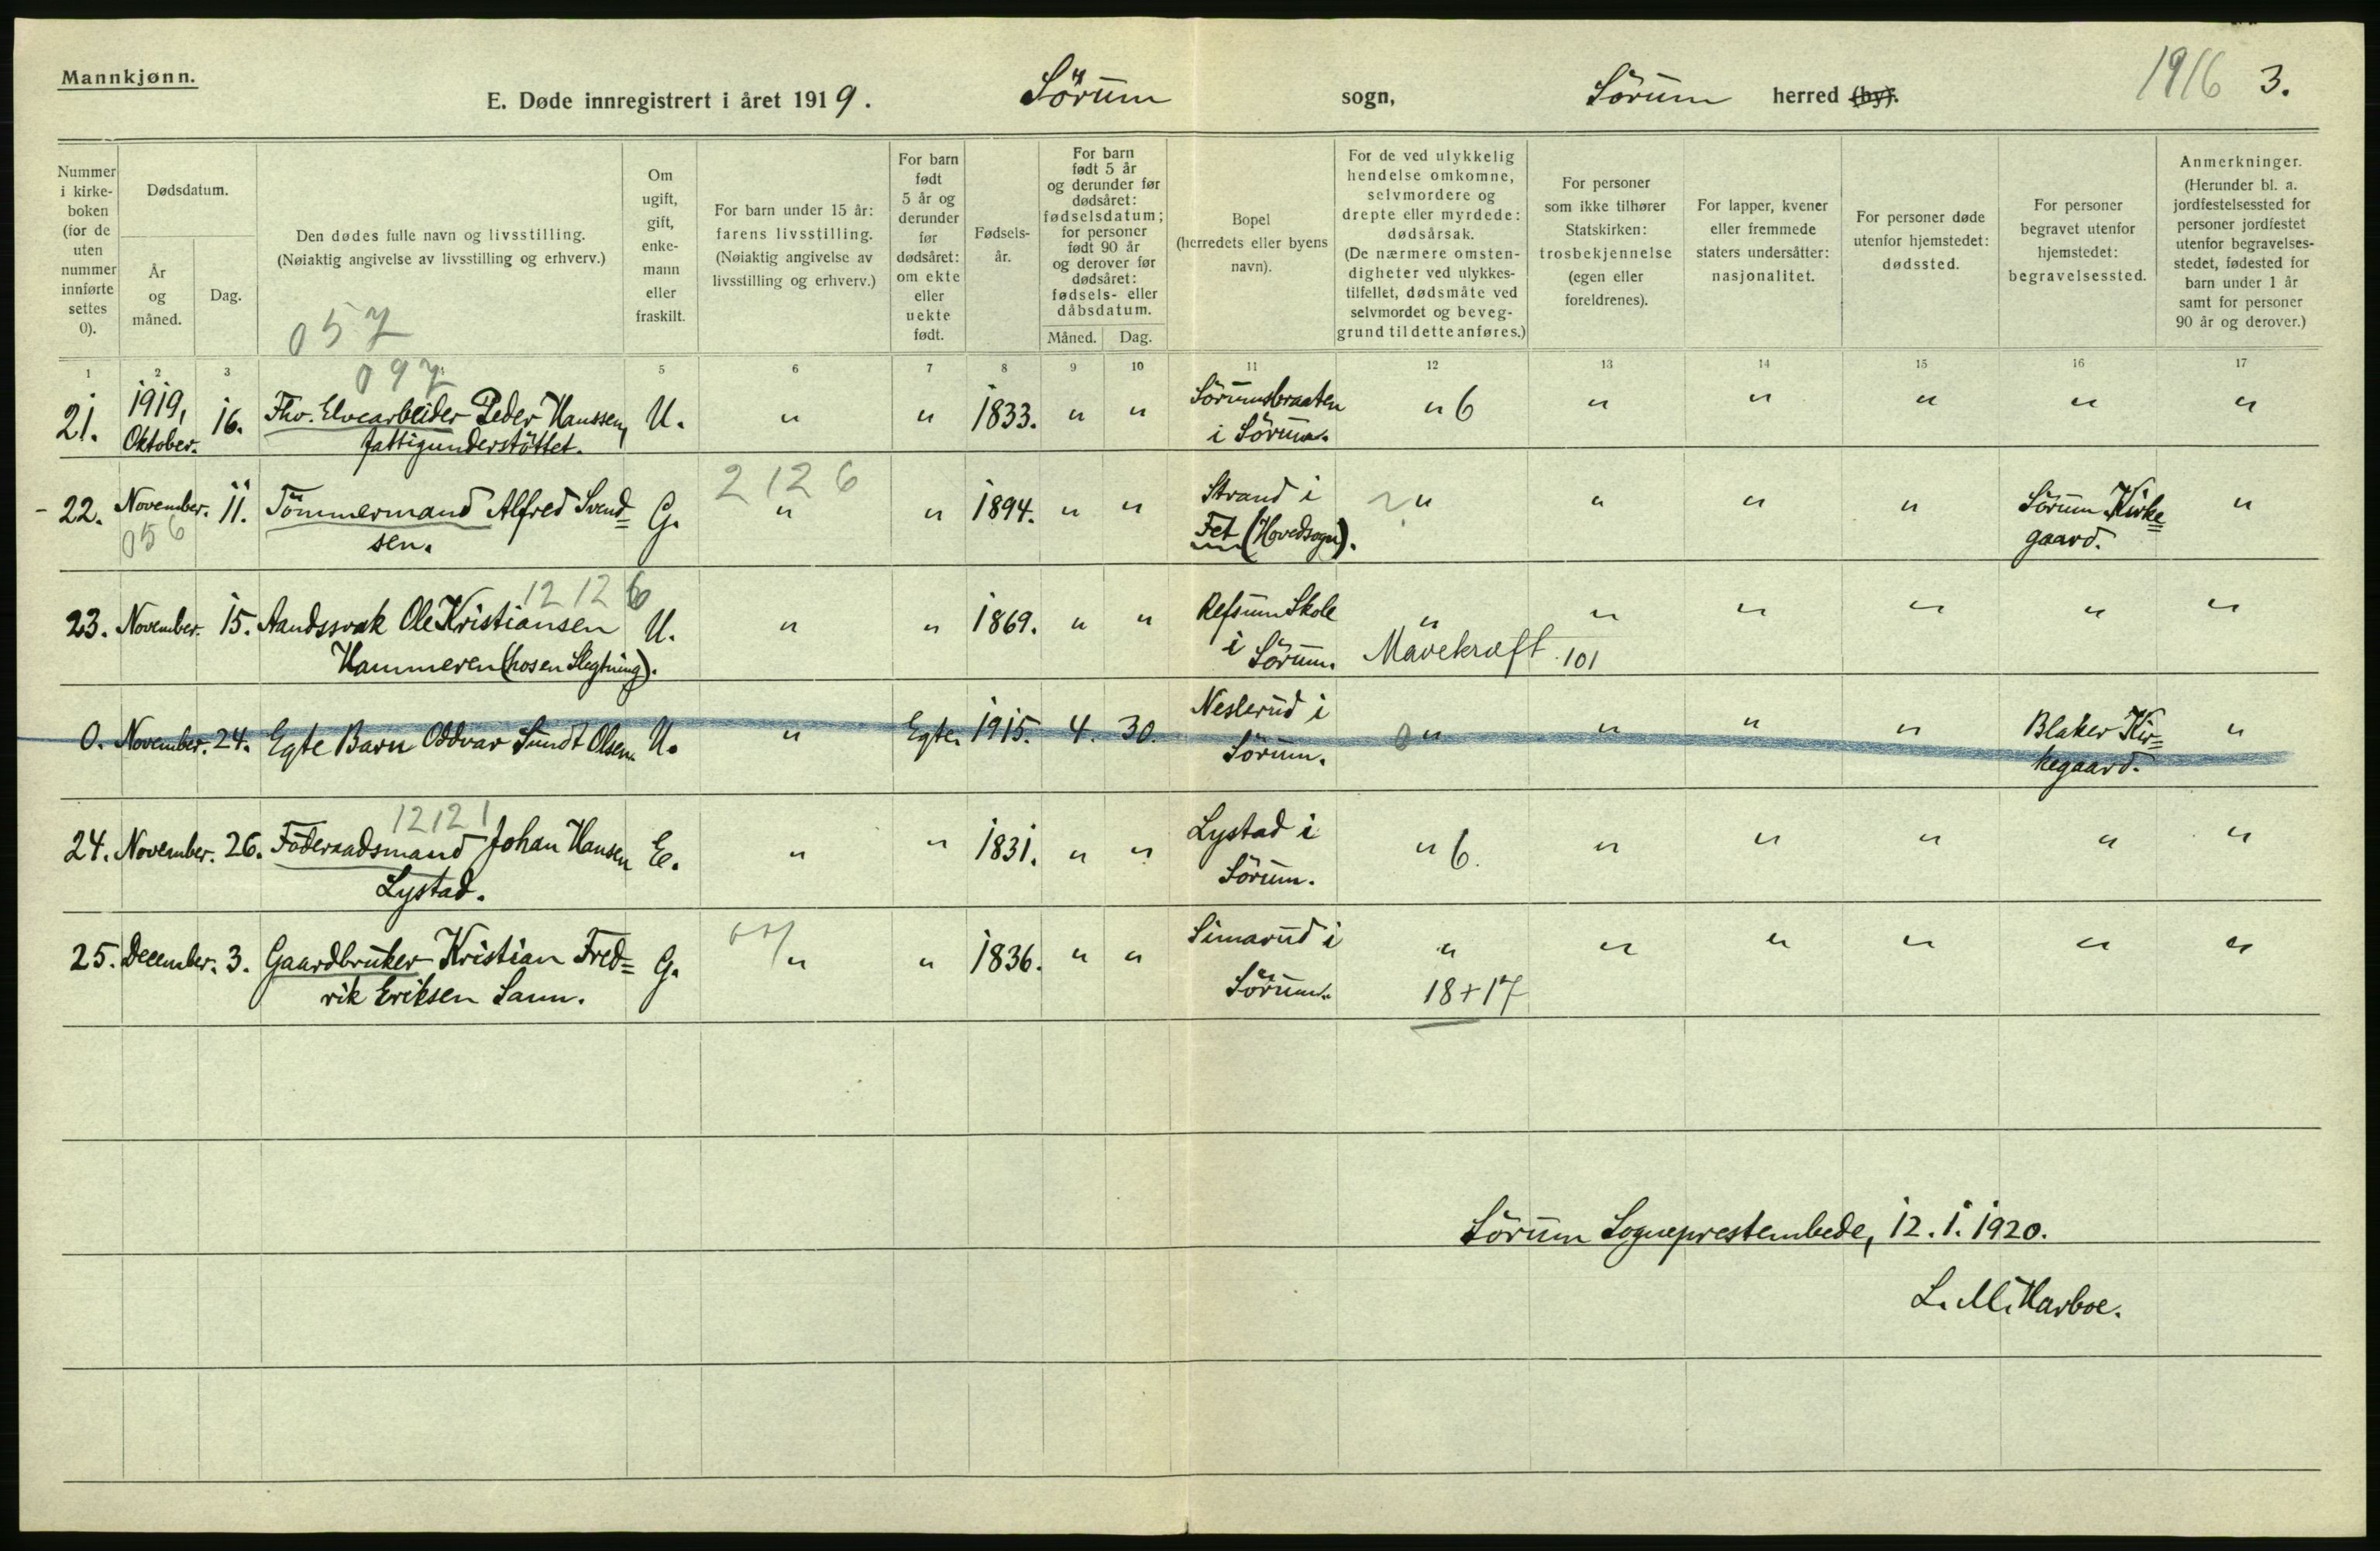 Mannkjønn.
E. Døde innregistrert i året 1919. Sörum sogn, Sörum herred (by). 1916 3.
Nummer i kirke-boken (for de uten nummer innførte settes 0).
Dødsdatum.
År og måned.
Dag.
Den dødes fulle navn og livsstilling.
(Nøiaktig angivelse av livsstilling og erhverv.)
Om ugift, gift, enke-mann eller fraskilt.
For barn under 15 år: farens livsstilling. (Nøiaktig angivelse av livsstilling og erhverv.)
For barn født 5 år og derunder før dødsåret: om ekte eller uekte født.
Fødsels-år.
For barn født 5 år og derunder før dødsåret: fødselsdatum; for personer født 90 år og derover før dødsåret: fødsels- eller dåbsdatum.
Måned. Dag.
Bopel (herredets eller byens navn).
For de ved ulykkelig hendelse omkomne, selvmordere og drepte eller myrdede: dødsårsak. (De nærmere omsten-digheter ved ulykkes-tilfellet, dødsmåte ved selvmordet og beveg-grund til dette anføres.)
For personer som ikke tilhører Statskirken: trosbekjennelse (egen eller foreldrenes).
For lapper, kvener eller fremmede staters undersåtter: nasjonalitet.
For personer døde utenfor hjemstedet: dødssted.
For personer begravet utenfor hjemstedet: begravelsessted.
Anmerkninger. (Herunder bl. a. jordfestelsessted for personer jordfestet utenfor begravelses-stedet, fødested for barn under 1 år samt for personer 90 år og derover.)
057
1 2 3 5 6 7 8 9 10 11 12 13 14 15 16 17
097
21. 1919, Oktober. 16. Fhv. Elvearbeider Peder Hanssen, U. " " 1833. " " Sörumsbraaten " 6 " " " " "
fattigunderstöttet. i Sörum.
2126
22. November. 11. Tömmermand Alfred Svend= G. " " 1894. " " Strand i " " " " Sörum Kirke= "
056 sen. Fet (Hovedsogn). gaard.
12126
23. November. 15. Aandssvak Ole Kristiansen U. " " 1869. " " Refsum Skole " " " " " "
Hammeren (hos en Slegtning). i Sörum. Mavekræft 101
0. November. 24. Egte Barn Oddvar Sundt Olsen. U. " Egte. 1915. 4. 30. Neslerud i 0 " " " " Blaker Kir= "
Sörum. kegaard.
12121
24. November. 26. Föderaadsmand Johan Hansen E. " " 1831. " " Lystad i " 6. " " " " "
Lystad. Sörum.
25. December. 3. Gaardbruker Kristian Fred= G. " " 1836. " " Simarud i " " " " " "
rik Eriksen Sann. Sörum. 18+17
Sörum Sogneprestembede, 12.1.1920.
L. M. Harboe.